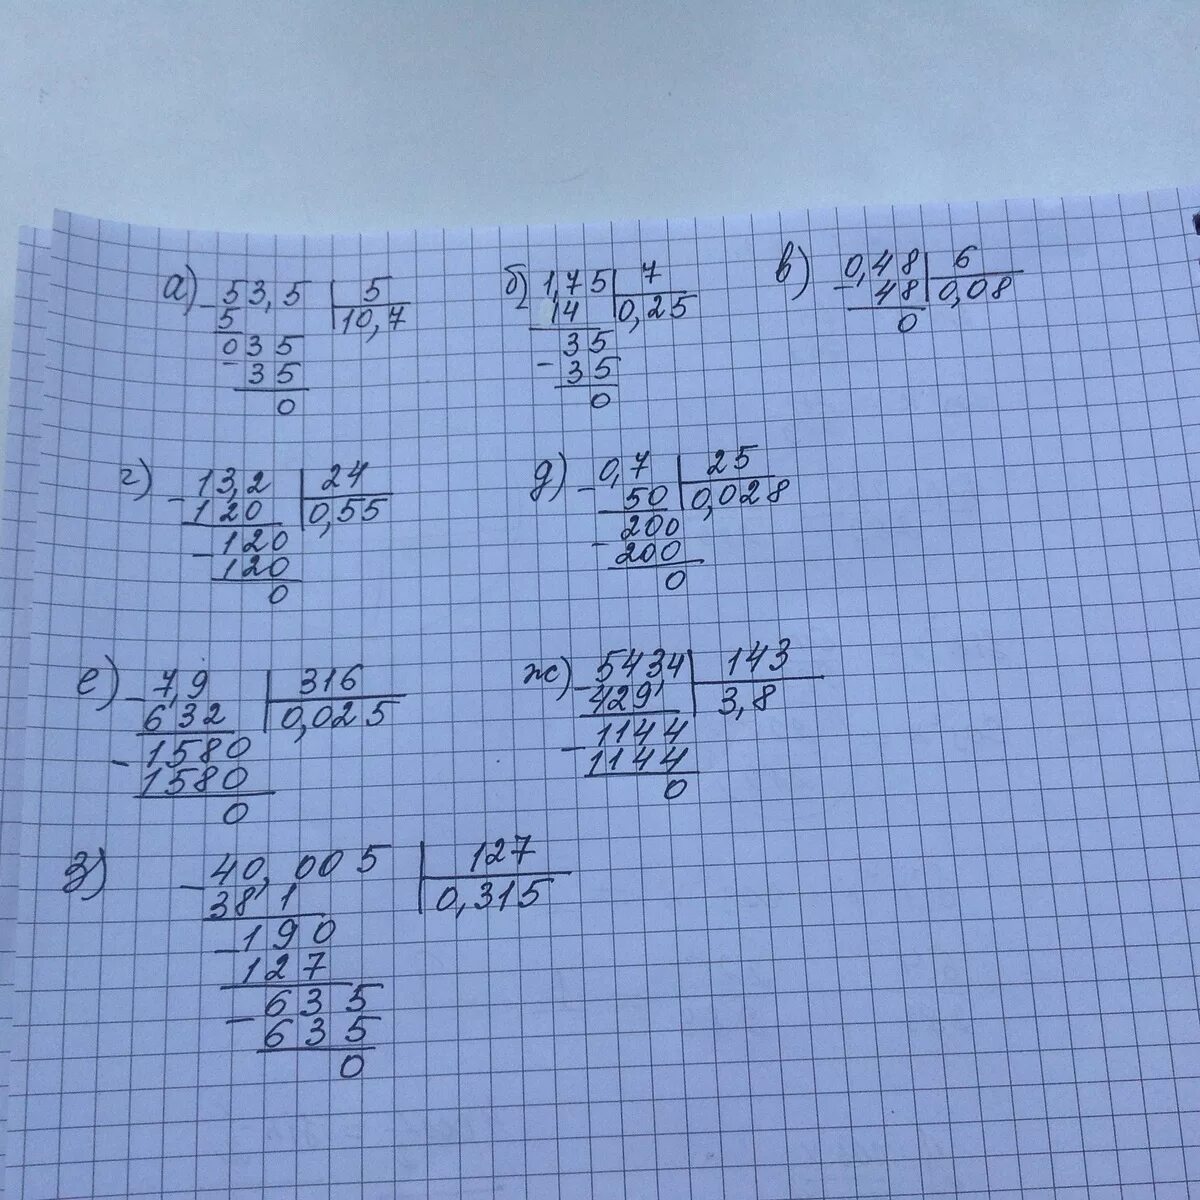 а) - 53,5 | 5
5 10,7
035
- 35
0
б) 1,75 | 7
14 0,25
35
- 35
0
в) 0,48 | 6
- 48 0,08
0
г) - 13,2 | 24
120 0,55
- 120
120
0
д) - 0,7 | 25
50 0,028
200
- 200
0
е) - 7,9 | 316
632 0,025
- 1580
1580
0
ж) - 5434 | 143
429 3,8
- 1144
1144
0
з) - 40,005 | 127
38 1 0,315
- 190
127
- 635
635
0